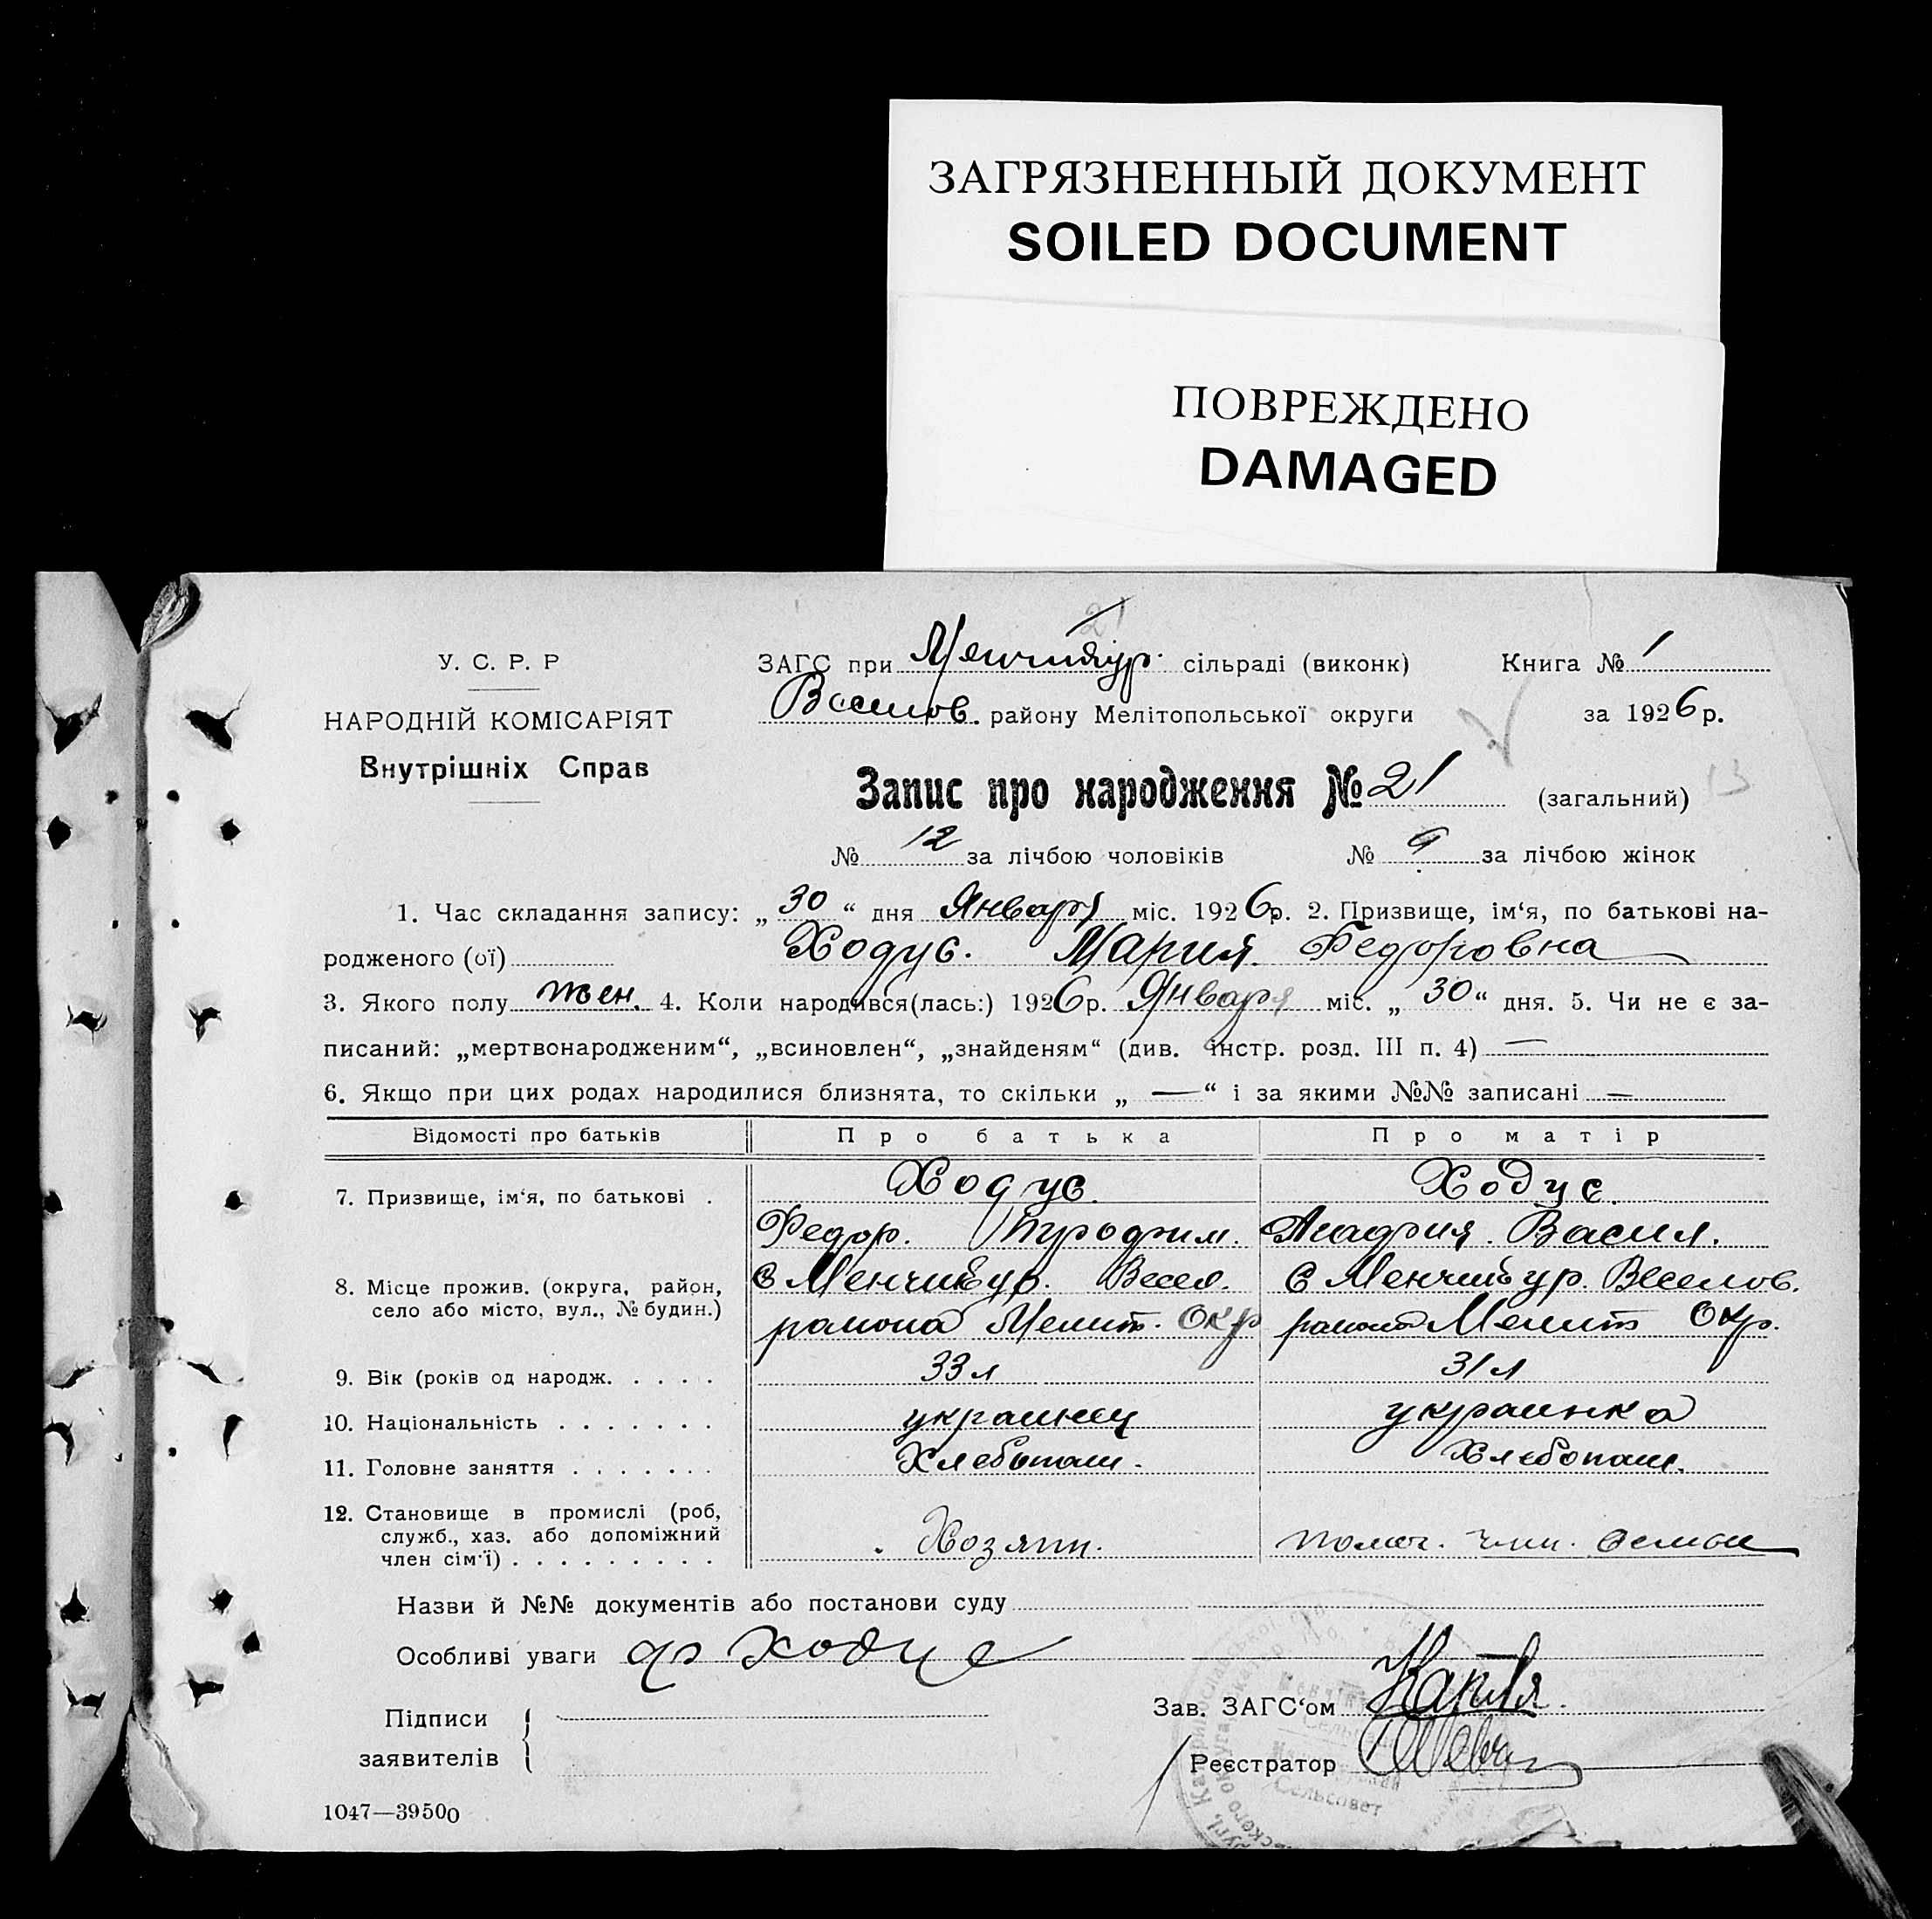 ЗАГРЯЗНЕННЫЙ ДОКУМЕНТ
SOILED DOCUMENT
ПОВРЕЖДЕНО
DAMAGED
21
У. С. Р. Р
НАРОДНІЙ КОМІСАРІЯТ
Внутрішніх Справ
ЗАГС при Менчикур. сільраді (виконк)
Книга № 1
Веселов. району Мелітопольської округи
за 1926 р.
Запис про народження № 21 (загальний) 13
№ 12 за лічбою чоловіків № 9 за лічбою жінок
1. Час складання запису: „30“ дня Января міс. 1926 р. 2. Призвище, ім‘я, по батькові на-
родженого (ої) Ходус. Мария Федоровна
3. Якого полу жен. 4. Коли народився(лась:) 1926 р. Января міс. „30“ дня. 5. Чи не є за-
писаний: „мертвонародженим“, „всиновлен“, „знайденям“ (див. інстр. розд. III п. 4) —
6. Якщо при цих родах народилися близнята, то скільки „ — “ і за якими №№ записані —
Відомості про батьків Про батька Про матір
7. Призвище, ім‘я, по батькові . Ходус. Ходус.
Федор. Васил.
8. Місце прожив. (округа, район, с Менчикур. Весел. с Менчикур. Веселов.
село або місто, вул., № будин.) района Мелит. Окр района Мелит Окр.
9. Вік (років од народж. . . . . 33 л 31 л
10. Національність . . . . . . . украинец украинка
11. Головне заняття . . . . . . . Хлебопаш. Хлебопаш.
12. Становище в промислі (роб,
служб., хаз. або допоміжний Хозяин. помог. член. семьи
член сім‘ї) . . . . . . . . .
Назви й №№ документів або постанови суду
Особливі уваги ф Ходус
Підписи
заявителів
Зав. ЗАГС‘ом
Реєстратор
Сельсовет
1047—39500